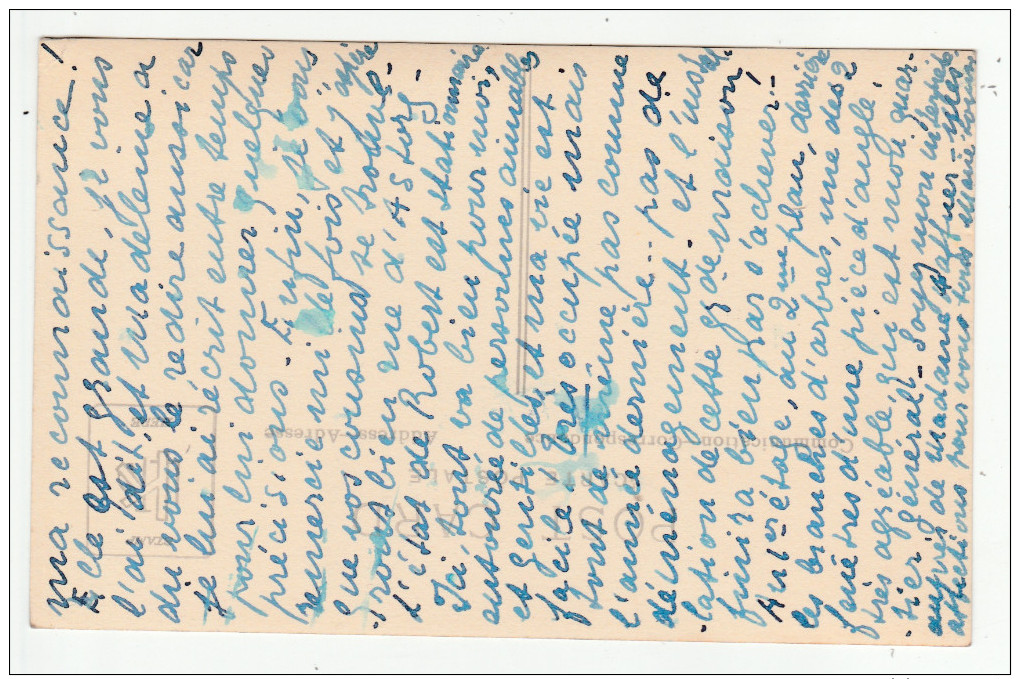 ma reconnaissance !
Elle est grande, je vous
l'ai dit, et Madeleine a
dû vous le redire aussi car
je lui ai récrit entre temps
pour lui donner quelques
précisions. Enfin, je vous
remercie mille fois et j'espère
que vos cousins se trouvent
bien d'Astorg -
L'état de Robert est stationnaire
Ici tout va bien pour moi,
entourée de personnes aimables
et gentilles, et ma vie est
facile très occupée mais
tout de même pas comme
l'année dernière - pas de
déménagement - et l'instal-
lation de cette gde maison,
finira bien par s'achever -
Au 1er étage, au 2me plan, derrière
les branches d'arbres, une des 2
fenêtres d'une pièce d'angle,
très agréable, qui est mon quar-
tier général - Soyez mon interprète
auprès de Madame - Mes
attections pour vous tous
POST CARD
CARTE POSTALE
Communication - Correspondance
Address - Adresse
STAMP
HERE